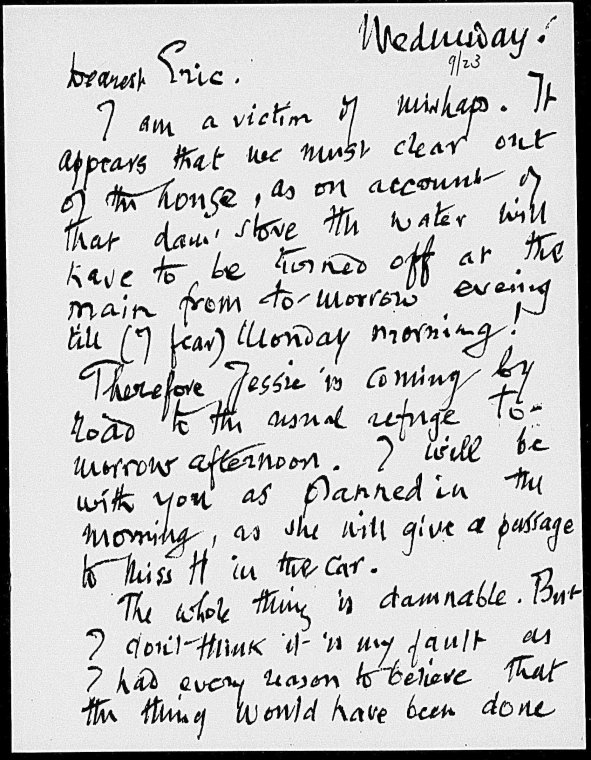 Wednesday.
9/23
Dearest Eric.
I am a victim of mishap. It
appears that we must clear out
of the house, as on account of
that dam' stove the water will
have to be turned off at the
main from to-morrow evening
till (I fear) Monday morning!
Therefore Jessie is coming by
road to the usual refuge to-
morrow afternoon. I will be
with you as planned in the
morning, as she will give a passage
to Miss H in the car.
The whole thing is damnable. But
I don't think it is my fault as
I had every reason to believe that
the thing would have been done